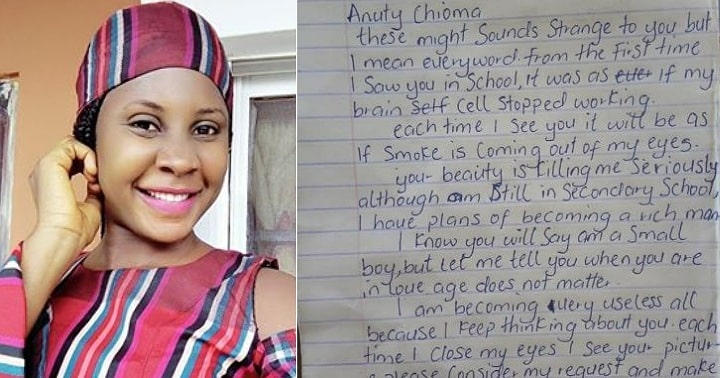 Anuty Chioma
these might Sounds Strange to you, but
I mean everyword. from the first time
I Saw you in School, it was as if my
brain cell stopped working.
each time I see you it will be as
If Smoke is Coming out of my eyes.
your beauty is killing me Seriously
although am Still in Secondary School,
I have plans of becoming a rich man
I know you will Say am a Small
boy, but let me tell you when you are
in love age does not matter.
I am becoming very useless all
because I keep thinking about you. each
time I close my eyes I See your pictur
please Consider my request and make